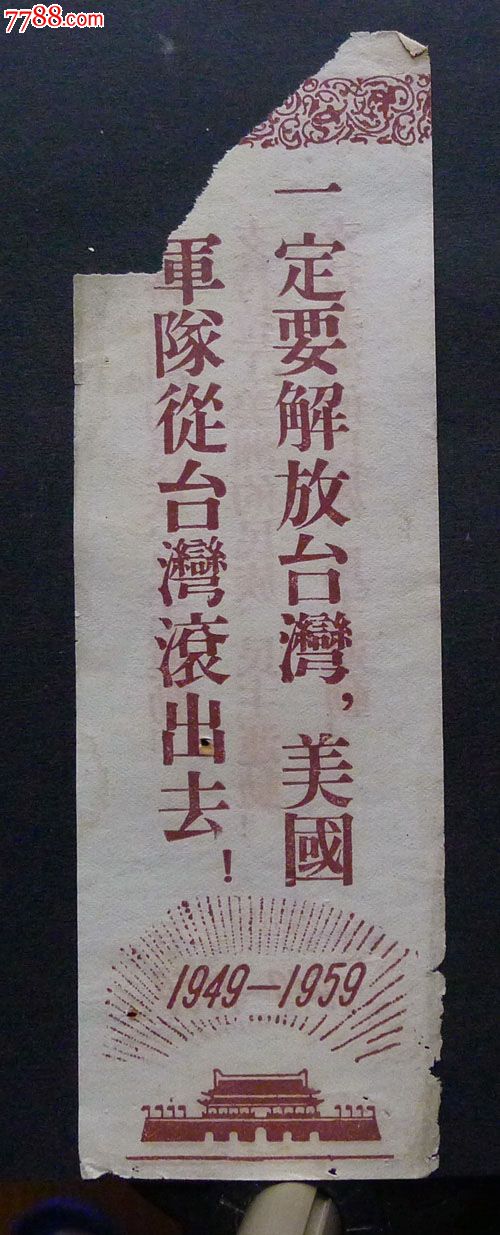 7788.com
一定要解放台灣，美國
軍隊從台灣滾出去！
1949—1959